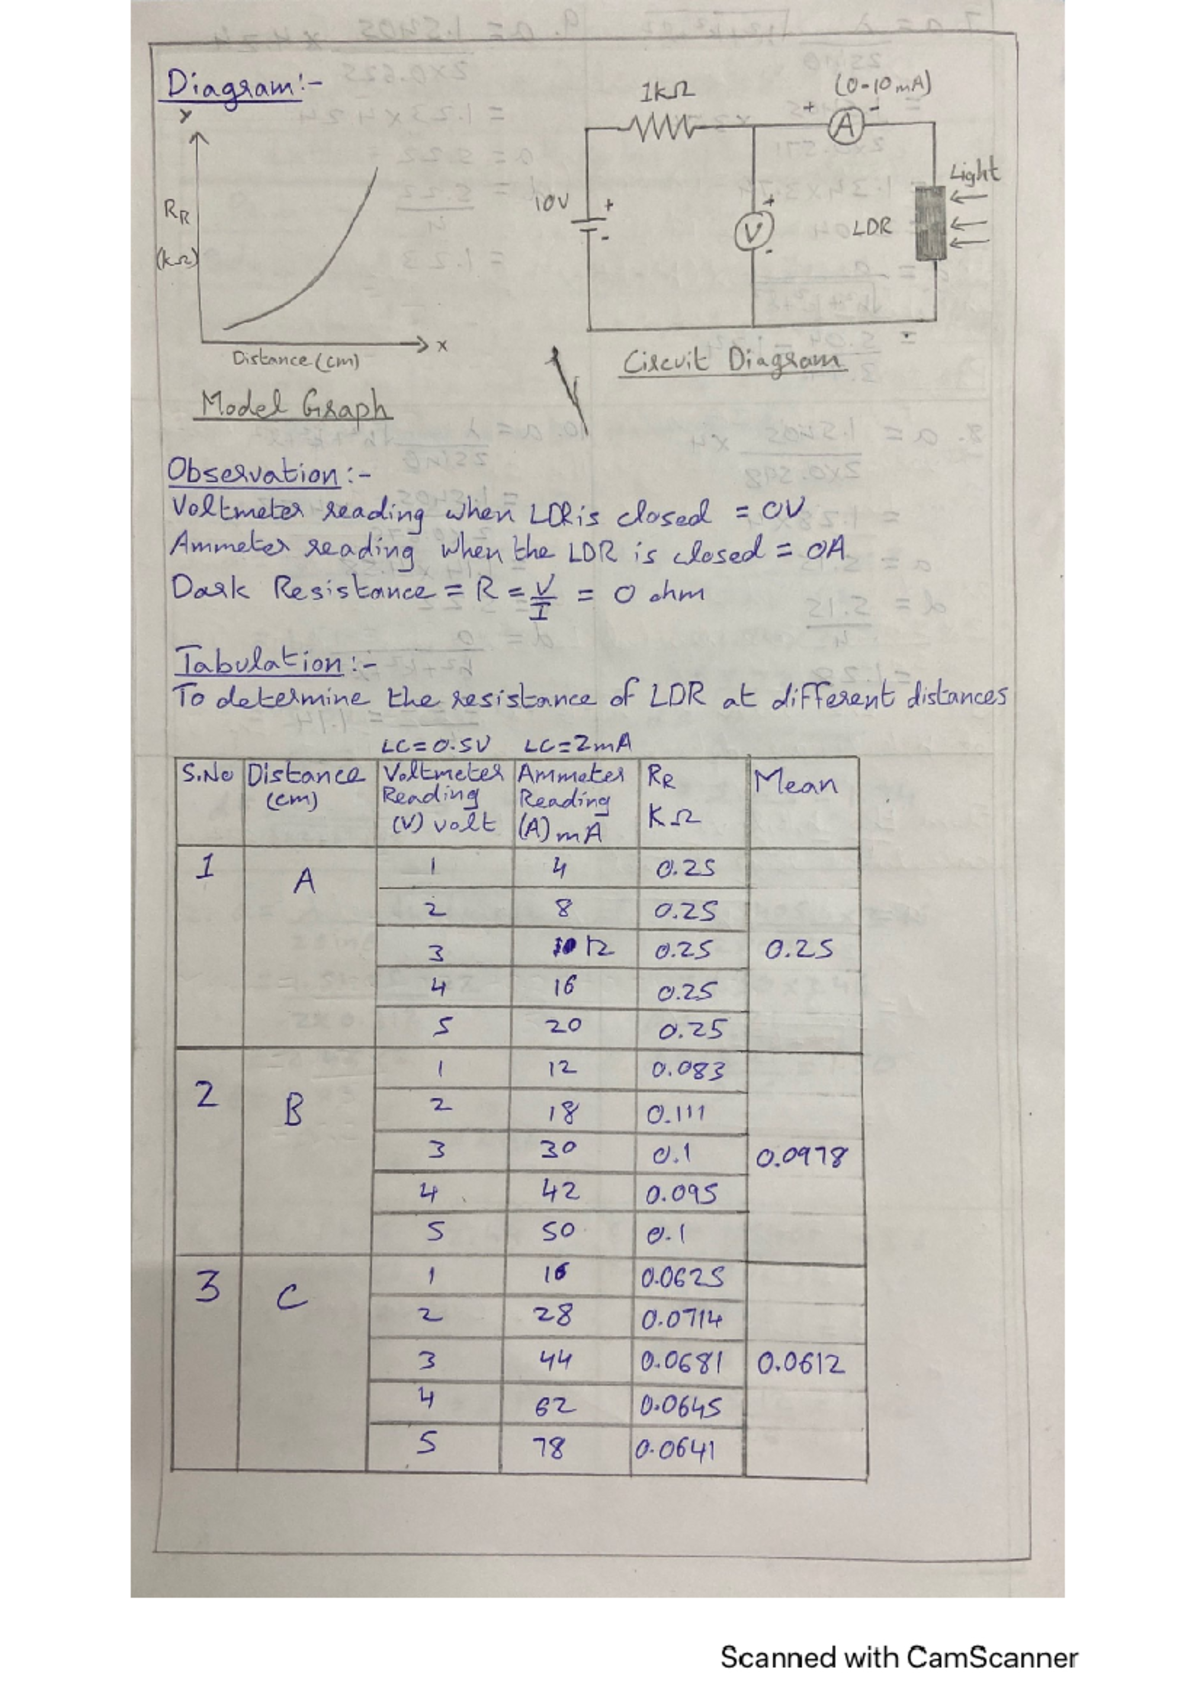 Diagram:-
Y
RR
(kΩ)
Distance (cm)
x
Model Graph
1kΩ
(0-10mA)
+ -
A
10V
+
-
+
V
-
LDR
Light
Circuit Diagram
Observation:-
Voltmeter reading when LDR is closed = 0V
Ammeter reading when the LDR is closed = 0A
Dark Resistance = R = V/I = 0 ohm
Tabulation:-
To determine the resistance of LDR at different distances
LC=0.5V LC=2mA
S.No Distance (cm) Voltmeter Reading (V) volt Ammeter Reading (A) mA RR KΩ Mean
1 A 1 4 0.25
2 8 0.25
3 12 0.25 0.25
4 16 0.25
5 20 0.25
2 B 1 12 0.083
2 18 0.111
3 30 0.1 0.0978
4 42 0.095
5 50 0.1
3 C 1 16 0.0625
2 28 0.0714
3 44 0.0681 0.0612
4 62 0.0645
5 78 0.0641
Scanned with CamScanner